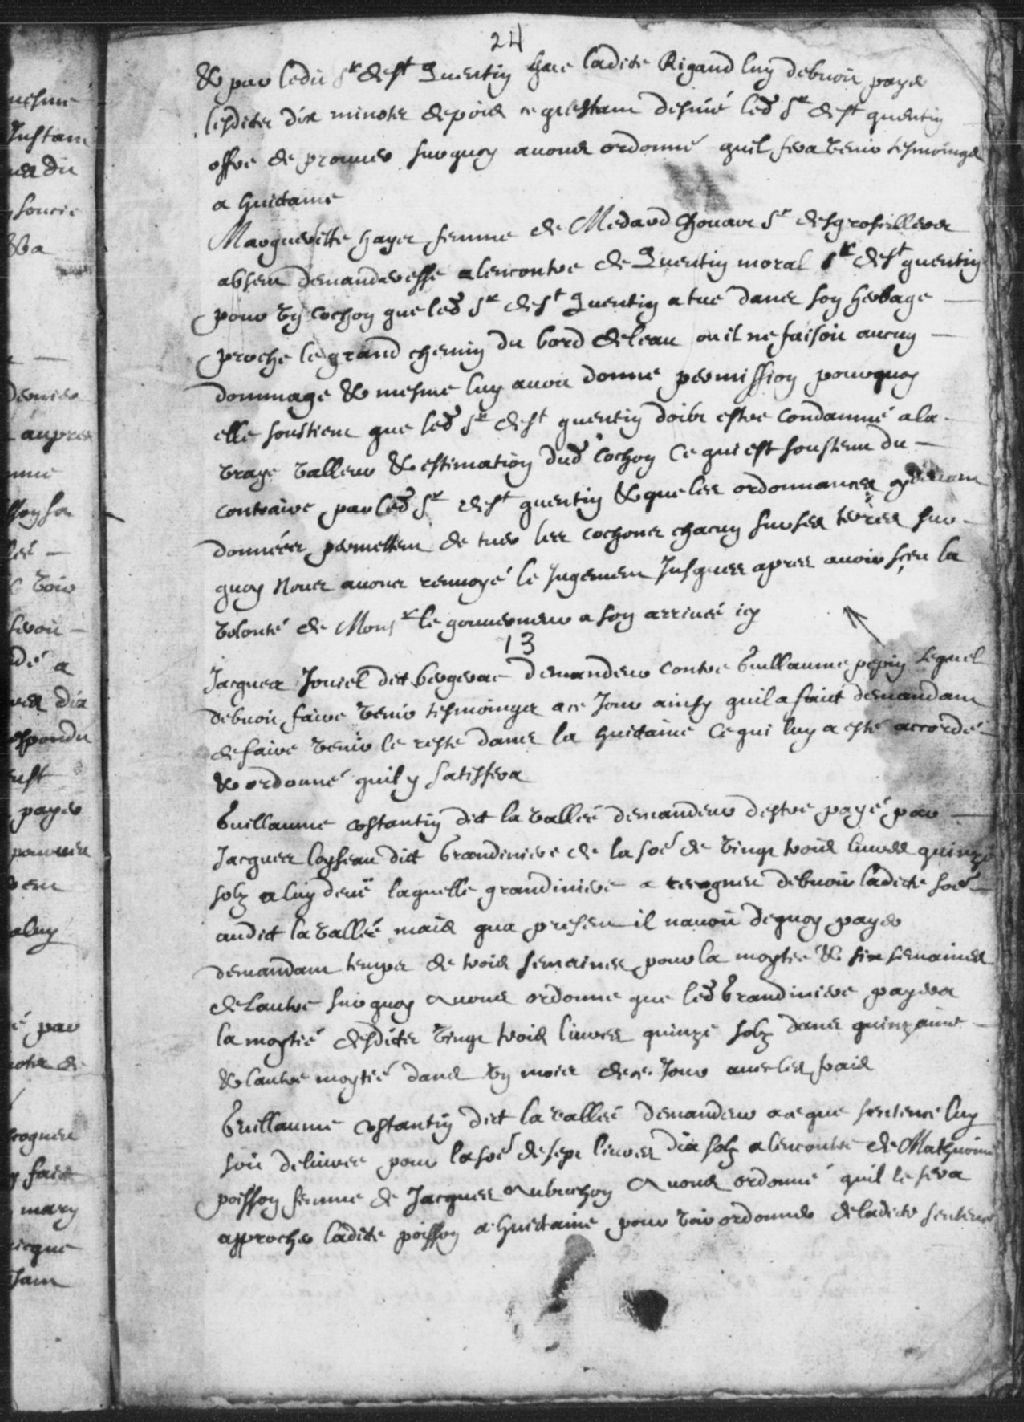 24
& par ledit sr de st Quentin que ladite Rigaud luy debvoit payer
lesdites dix minotz de pois ce questant desnié led sr de st quentin
offre de prouver sur quoy avons ordonné quil fera venir tesmoings
a huictaine
Margueritte hayet femme de Medard Chouart sr desgroseillers
absent demanderesse alencontre de Quentin moral sr de st quentin
pour un cochon que led sr de st Quentin a tué dans son herbage
proche le grand chemin du bord de leau ou il ne faisoit aucun
dommage & mesme luy avoit donné permission pourquoy
elle soustient que led sr de st quentin doibt estre condamné a la
vraye valleur & estimation dud cochon Ce qui est soustenu du
contraire par led sr de st quentin & que les ordonnances
données permettent de tuer les cochons chacun sur ses terres sur
quoy Nous avons renvoyé le Jugement Jusques apres avoir sçeu la
volonté de Monsr le gouverneur a son arrivée icy
13
Jacques Jouiel dit bergerac demandeur contre Guillaume pepin lequel
debvoit faire venir tesmoings a ce Jour ainsy quil a faict demandant
de faire venir le reste dans la huictaine Ce qui luy a esté accordé
& ordonné quil y satisfera
Guillaume Constantin dict la vallée demandeur destre payé par
Jacques loyseau dict Grandiniere de la soe de vingt trois livres quinze
solz a luy deue laquelle grandiniere a recognu debvoir ladicte soe
audict la vallée mais qua present il navoit dequoy payer
demandant temps de trois semaines pour la moytié & six semaines
de Lautre sur quoy Avons ordonné que led Grandiniere payera
la moytié desdites vingt trois livres quinze solz dans quinzaine
& lautre moytié dans un mois de ce Jour avec les frais
Guillaume Constantin dict la vallée demandeur a ce que sentence luy
soit delivrée pour la soe de sept livres dix solz alencontre de Mathurine
poisson femme de Jacques Aubuchon Avons ordonné quil le fera
approcher ladite poisson a huictaine pour voir ordonner de ladite sentence